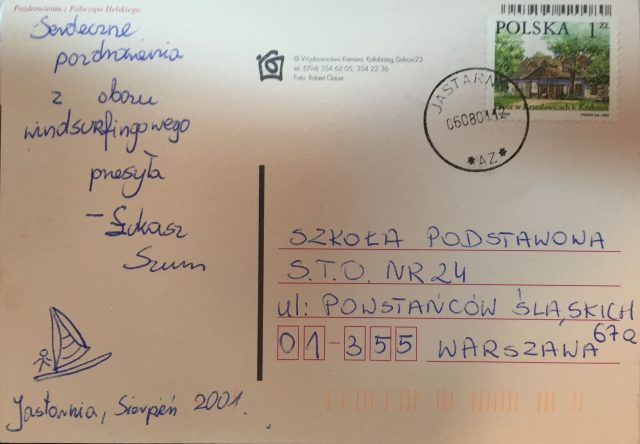 Pozdrowienia z Półwyspu Helskiego
Serdeczne
pozdrowienia
z obozu
windsurfingowego
przesyła
– Łukasz
Szum
Jastarnia, Sierpień 2001.
© Wydawnictwo Kamera, Kołobrzeg, Dubois 23
tel. (094) 354 62 05, 354 22 36
Foto. Robert Gauer.
POLSKA 1 ZŁ
Dwór w Krzesławicach k. Krakowa
JASTARNIA
060801.12
* AZ *
SZKOŁA PODSTAWOWA
S.T.O. NR 24
ul: POWSTAŃCÓW ŚLĄSKICH
67a
01-355 WARSZAWA